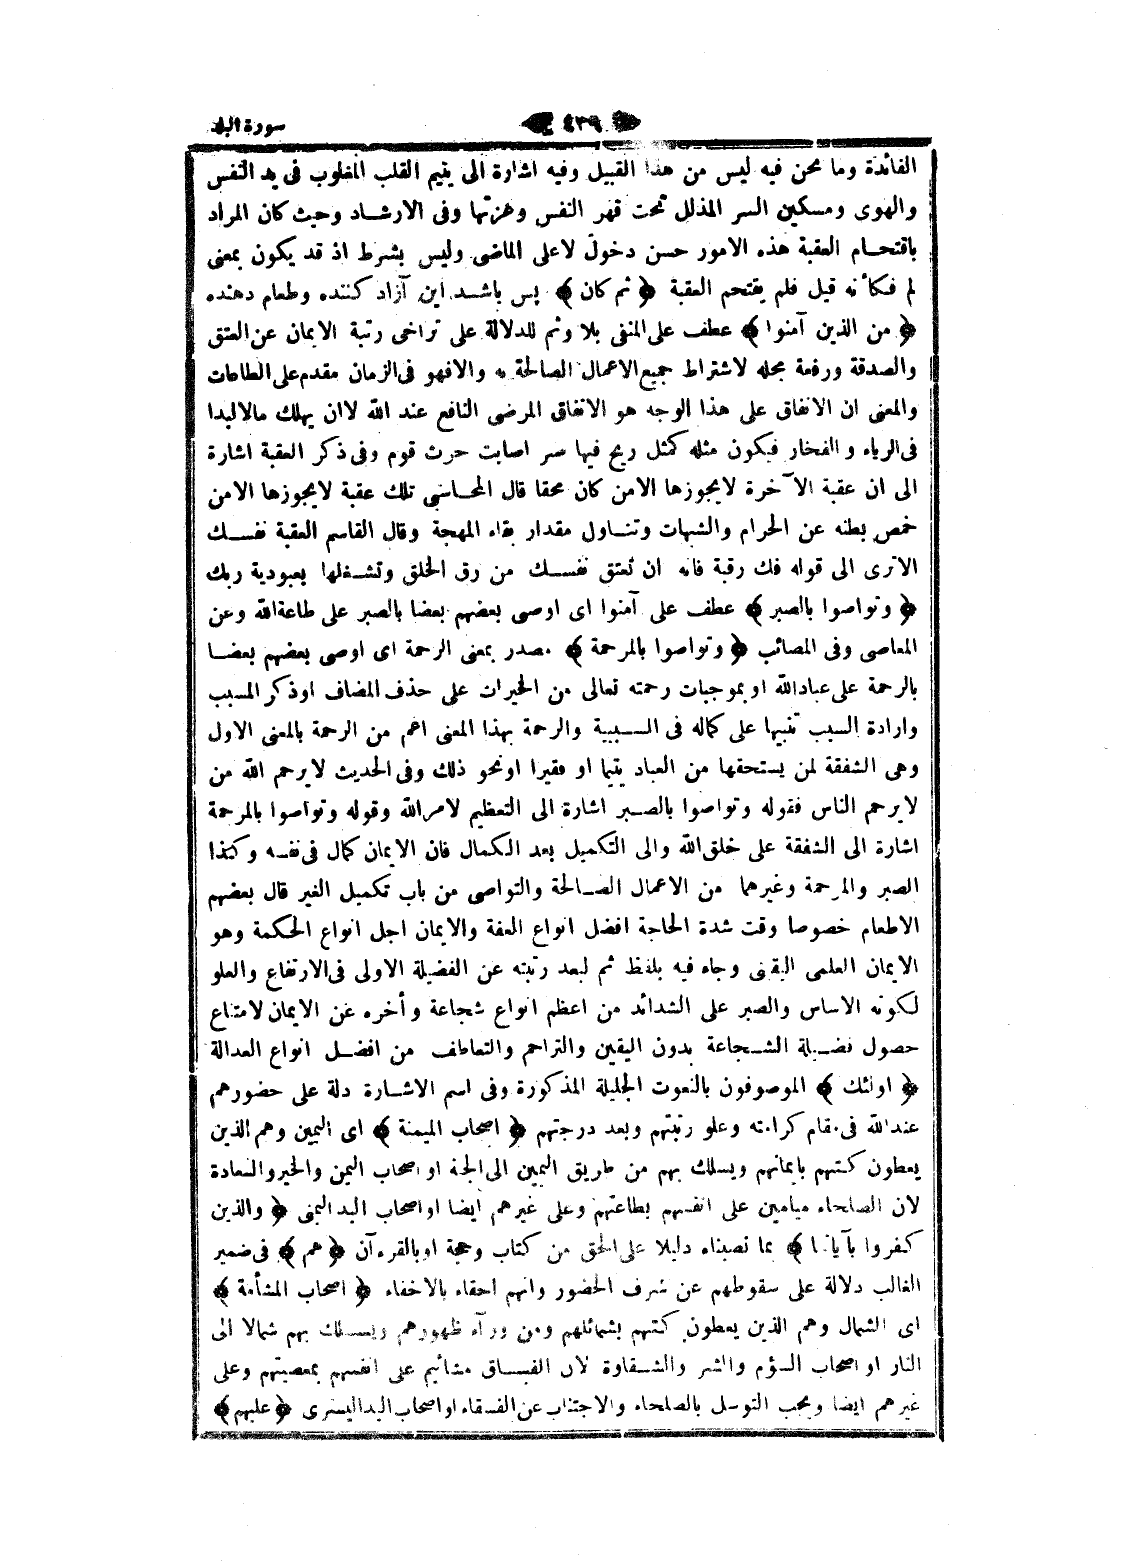 سورة البلد ﴿ ٤٣٩ ﴾
الفائدة وما نحن فيه ليس من هذا القبيل وفيه اشارة الى يتيم القلب المغلوب فى يد النفس
والهوى ومسكين السر المذلل تحت قهر النفس وعزتها وفى الارشاد وحيث كان المراد
باقتحام العقبة هذه الامور حسن دخول لا على الماضى وليس بشرط اذ قد يكون بمعنى
لم فكأنه قيل فلم يقتحم العقبة ﴿ ثم كان ﴾ پس باشد اين آزاد كننده وطعام دهنده
﴿ من الذين آمنوا ﴾ عطف على المنفى بلا وثم للدلالة على تراخى رتبة الايمان عن العتق
والصدقة ورفعة محله لاشتراط جميع الاعمال الصالحة به والا فهو فى الزمان مقدم على الطاعات
والمعنى ان الانفاق على هذا الوجه هو الانفاق المرضى النافع عند الله لا ان يهلك مالا لبدا
فى الرياء والفخار فيكون مثله كمثل ريح فيها صر اصابت حرث قوم وفى ذكر العقبة اشارة
الى ان عقبة الآخرة لا يجوزها الا من كان محقا قال المحاسبى تلك عقبة لا يجوزها الا من
خمص بطنه عن الحرام والشبهات وتناول مقدار بقاء المهجة وقال القاسم العقبة نفسك
الا ترى الى قوله فك رقبة فانه ان تعتق نفسك من رق الخلق وتشغلها بعبودية ربك
﴿ وتواصوا بالصبر ﴾ عطف على آمنوا اى اوصى بعضهم بعضا بالصبر على طاعة الله وعن
المعاصى وفى المصائب ﴿ وتواصوا بالمرحمة ﴾ مصدر بمعنى الرحمة اى اوصى بعضهم بعضا
بالرحمة على عباد الله او بموجبات رحمته تعالى من الخيرات على حذف المضاف او ذكر المسبب
وارادة السبب تنبيها على كماله فى السببية والرحمة بهذا المعنى اعم من الرحمة بالمعنى الاول
وهى الشفقة لمن يستحقها من العباد يتيما او فقيرا او نحو ذلك وفى الحديث لا يرحم الله من
لا يرحم الناس فقوله وتواصوا بالصبر اشارة الى التعظيم لامر الله وقوله وتواصوا بالمرحمة
اشارة الى الشفقة على خلق الله والى التكميل بعد الكمال فان الايمان كمال فى نفسه وكذا
الصبر والمرحمة وغيرهما من الاعمال الصالحة والتواصى من باب تكميل الغير قال بعضهم
الاطعام خصوصا وقت شدة الحاجة افضل انواع العفة والايمان اجل انواع الحكمة وهو
الايمان العلمى اليقينى وجاء فيه بلفظ ثم لبعد رتبته عن الفضيلة الاولى فى الارتفاع والعلو
لكونه الاساس والصبر على الشدائد من اعظم انواع شجاعة وأخره عن الايمان لامتناع
حصول فضيلة الشجاعة بدون اليقين والتراحم والتعاطف من افضل انواع العدالة
﴿ اولئك ﴾ الموصوفون بالنعوت الجليلة المذكورة وفى اسم الاشارة دلة على حضورهم
عند الله فى مقام كرامته وعلو رتبتهم وبعد درجتهم ﴿ اصحاب الميمنة ﴾ اى اليمين وهم الذين
يعطون كتبهم بايمانهم ويسلك بهم من طريق اليمين الى الجنة او اصحاب اليمن والخير والسعادة
لان الصلحاء ميامين على انفسهم بطاعتهم وعلى غيرهم ايضا او اصحاب اليد اليمنى ﴿ والذين
كفروا بآياتنا ﴾ بما نصبناه دليلا على الحق من كتاب وحجة او بالقرءآن ﴿ هم ﴾ فى ضمير
الغائب دلالة على سقوطهم عن شرف الحضور وانهم احقاء بالاخفاء ﴿ اصحاب المشأمة ﴾
اى الشمال وهم الذين يعطون كتبهم بشمائلهم ومن ورآء ظهورهم ويسلك بهم شمالا الى
النار او اصحاب الشؤم والشر والشقاوة لان الفساق مشائيم على انفسهم بمعصيتهم وعلى
غيرهم ايضا ويجب التوسل بالصلحاء والاجتناب عن الفسقاء او اصحاب اليد اليسرى ﴿ عليهم ﴾